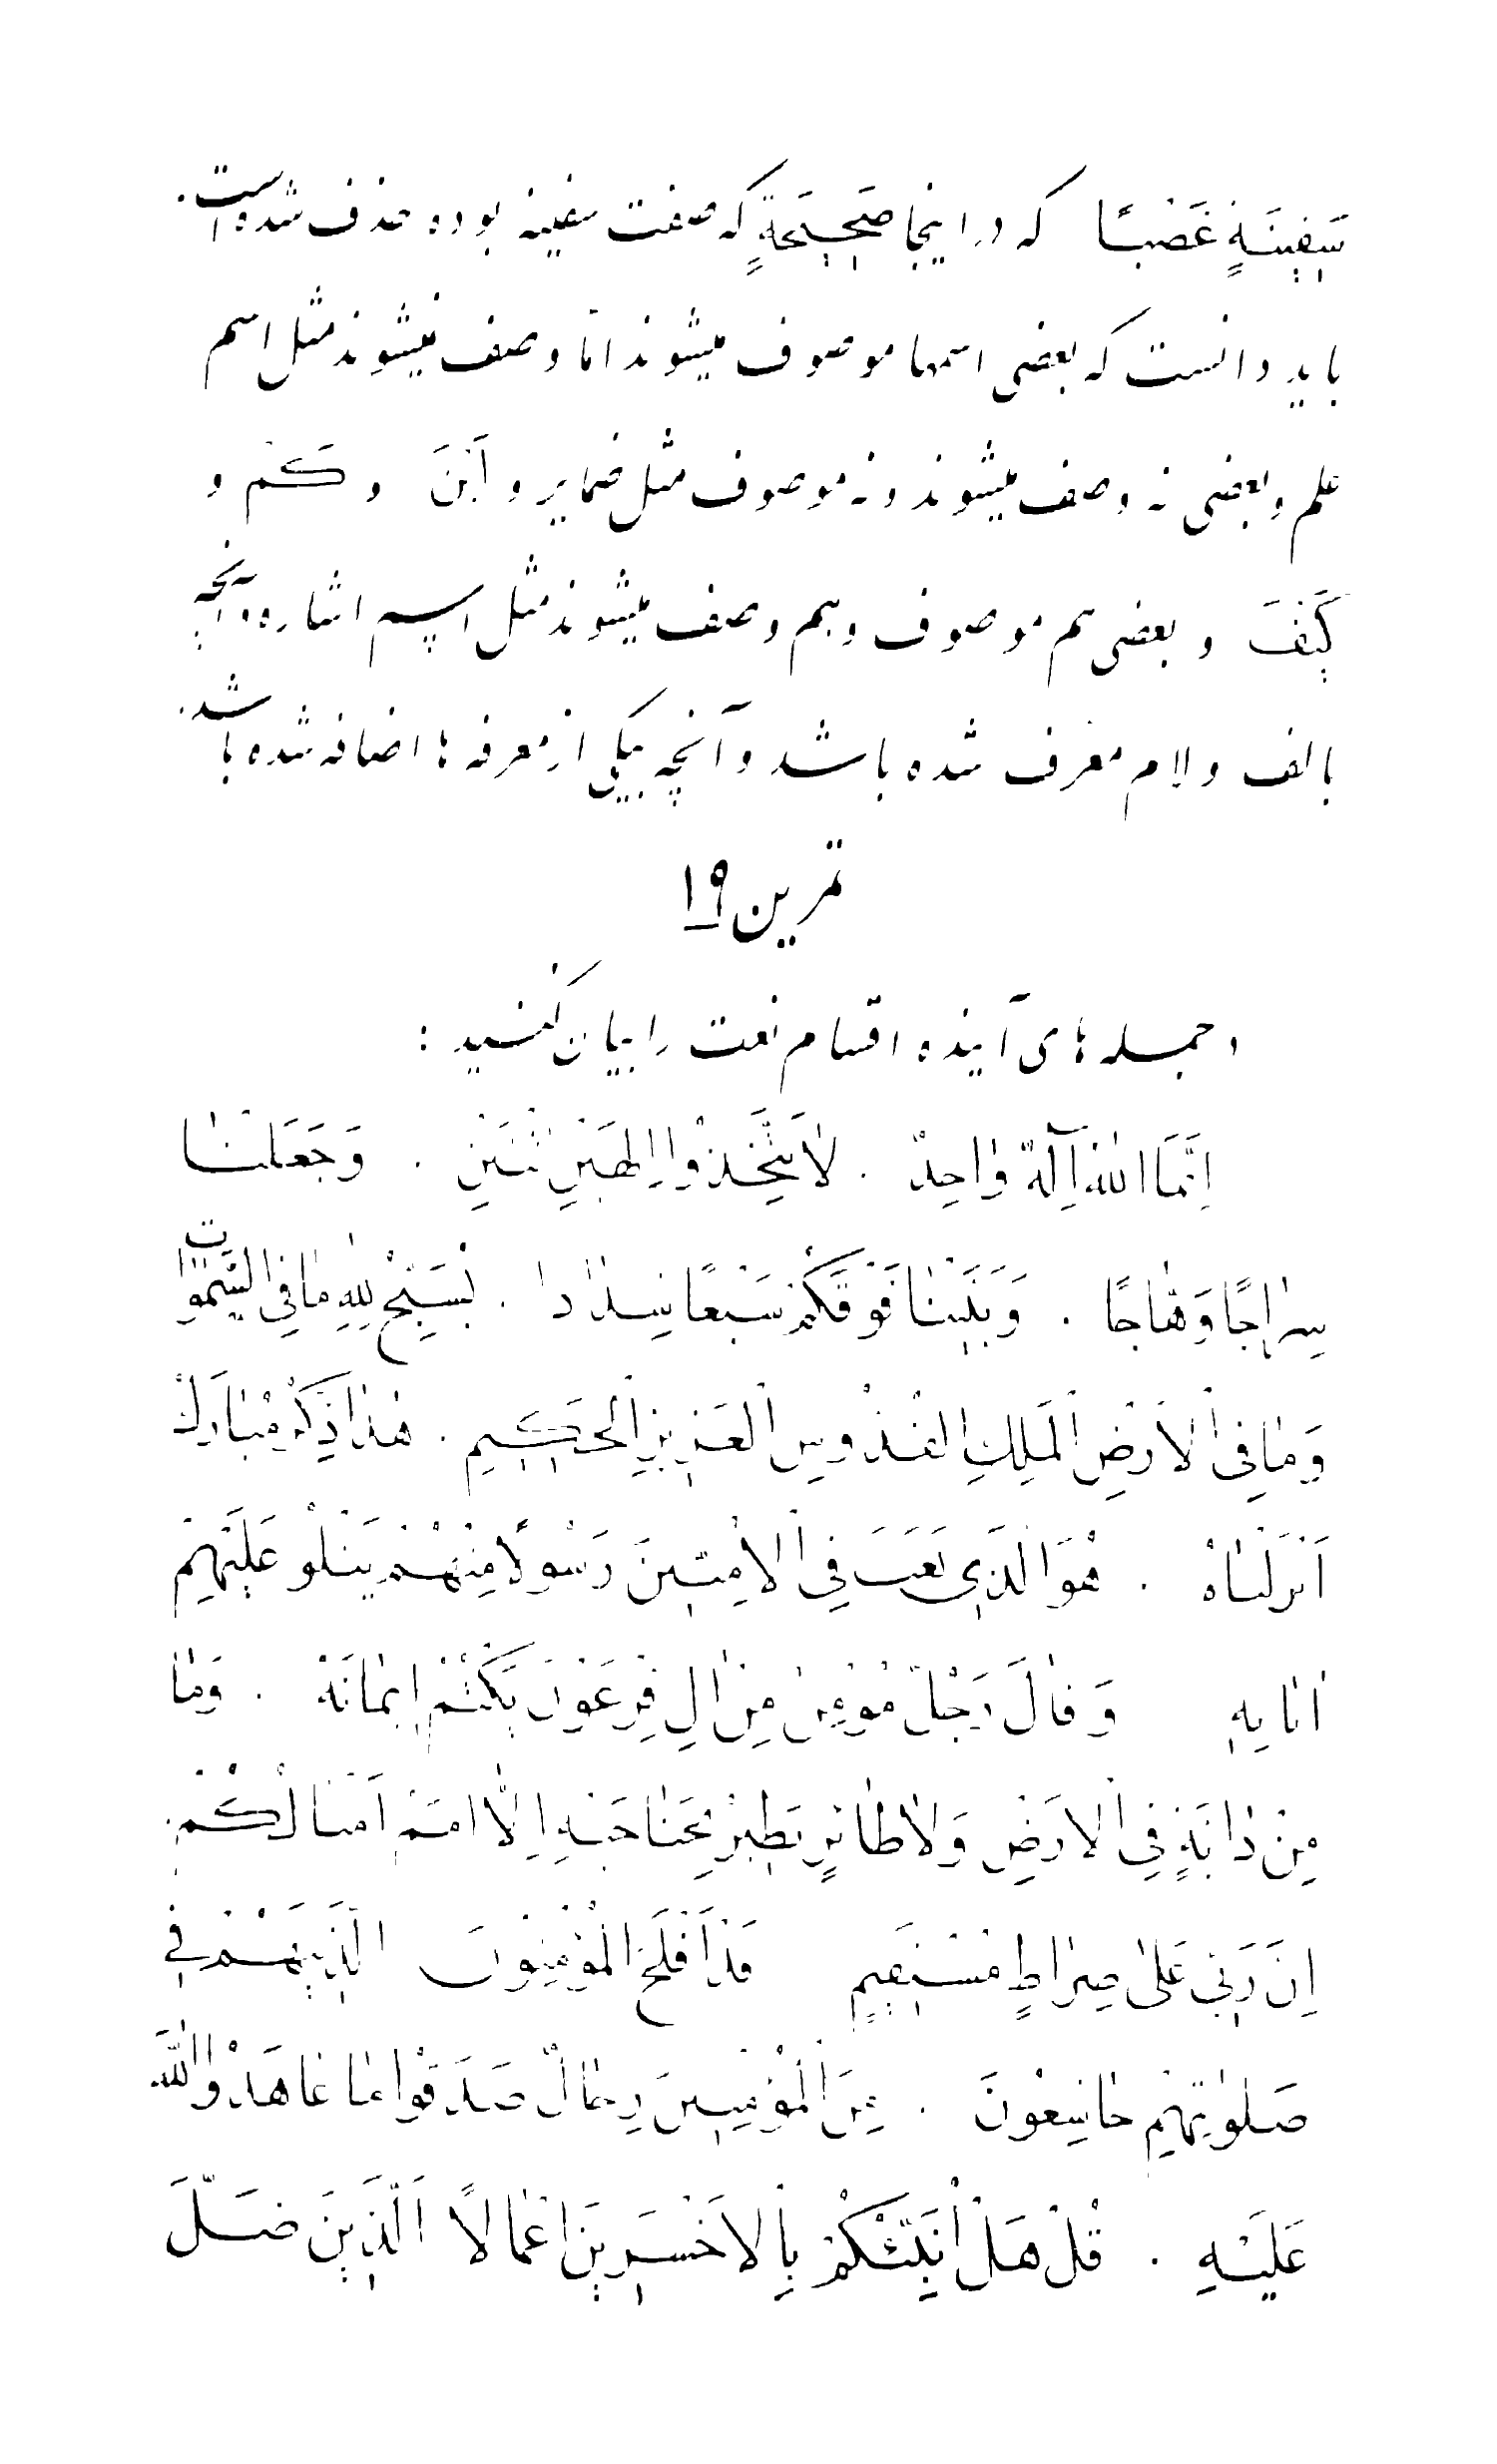 سَفِینَةٍ غَصْبًا که در اینجا صَحِیحَةٍ که صفت سفینه بوده حذف شده است.
باید دانست که بعضی اسمها موصوف میشوند امّا وصف نمیشوند مثل اسم
علم و بعضی نه وصف میشوند و نه موصوف مثل ضمایر و اَیْنَ و کَمْ و
کَیْفَ و بعضی هم موصوف و هم وصف میشوند مثل اسم اشاره و آنچه
بالف و لام معرف شده باشد و آنچه بیکی از معرفه ها اضافه شده باشد.
تمرین ۱۹
در جمله های آینده اقسام نعت را بیان کنید :
اِنَّمَا اللهُ اِلٰهٌ وٰاحِدٌ . لاٰ تَتَّخِذُوْا اِلٰهَیْنِ اثْنَیْنِ . وَ جَعَلْنٰا
سِرٰاجًا وَهّٰاجًا . وَ بَنَیْنٰا فَوْقَکُمْ سَبْعًا شِدٰادًا . یُسَبِّحُ لِلّٰهِ مٰا فِی السَّمٰوٰاتِ
وَ مٰا فِی الْاَرْضِ الْمَلِكِ الْقُدُّوسِ الْعَزِیزِ الْحَکِیمِ . هٰذٰا ذِکْرٌ مُبٰارَكٌ
اَنْزَلْنٰاهُ . هُوَ الَّذِی بَعَثَ فِی الْاُمِّیِّینَ رَسُولًا مِنْهُمْ یَتْلُو عَلَیْهِمْ
اٰیٰاتِهِ وَ قٰالَ رَجُلٌ مُؤْمِنٌ مِنْ اٰلِ فِرْعَوْنَ یَکْتُمُ اِیمٰانَهُ . وَ مٰا
مِنْ دٰابَّةٍ فِی الْاَرْضِ وَ لاٰ طٰائِرٍ یَطِیرُ بِجَنٰاحَیْهِ اِلّٰا اُمَمٌ اَمْثٰالُکُمْ.
اِنَّ رَبِّی عَلیٰ صِرٰاطٍ مُسْتَقِیمٍ قَدْ اَفْلَحَ الْمُؤْمِنُونَ الَّذِینَ هُمْ فِی
صَلوٰتِهِمْ خٰاشِعُونَ . مِنَ الْمُؤْمِنِینَ رِجٰالٌ صَدَقُوا مٰا عٰاهَدُوا اللّٰهَ
عَلَیْهِ . قُلْ هَلْ اُنَبِّئُکُمْ بِالْاَخْسَرِینَ اَعْمٰالًا اَلَّذِینَ ضَلَّ